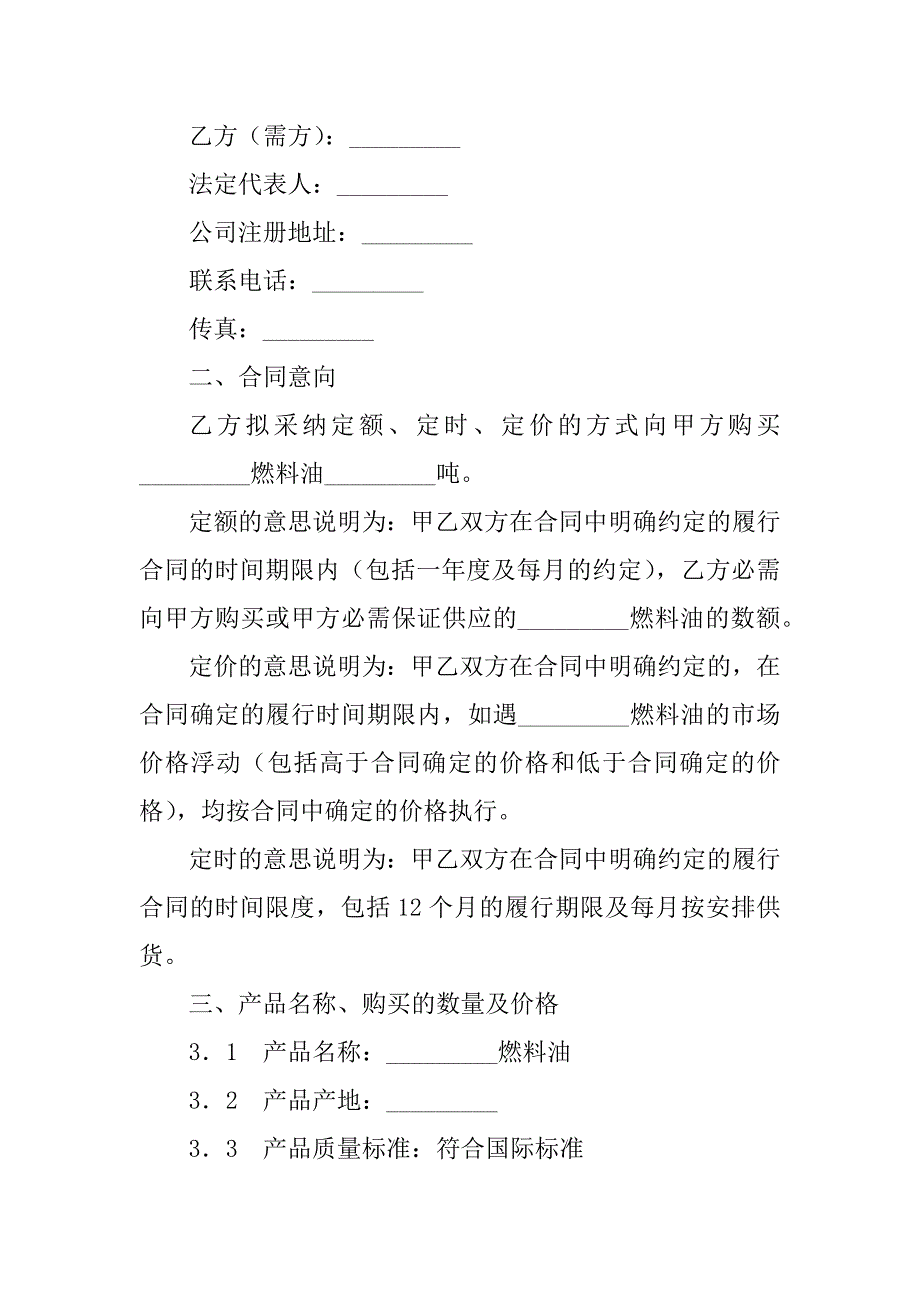 乙方（需方）：_________
法定代表人：_________
公司注册地址：_________
联系电话：_________
传真：_________
二、合同意向
乙方拟采纳定额、定时、定价的方式向甲方购买
_________燃料油_________吨。
定额的意思说明为：甲乙双方在合同中明确约定的履行
合同的时间期限内（包括一年度及每月的约定），乙方必需
向甲方购买或甲方必需保证供应的_________燃料油的数额。
定价的意思说明为：甲乙双方在合同中明确约定的，在
合同确定的履行时间期限内，如遇_________燃料油的市场
价格浮动（包括高于合同确定的价格和低于合同确定的价
格），均按合同中确定的价格执行。
定时的意思说明为：甲乙双方在合同中明确约定的履行
合同的时间限度，包括 12 个月的履行期限及每月按安排供
货。
三、产品名称、购买的数量及价格
3．1　产品名称：_________燃料油
3．2　产品产地：_________
3．3　产品质量标准：符合国际标准